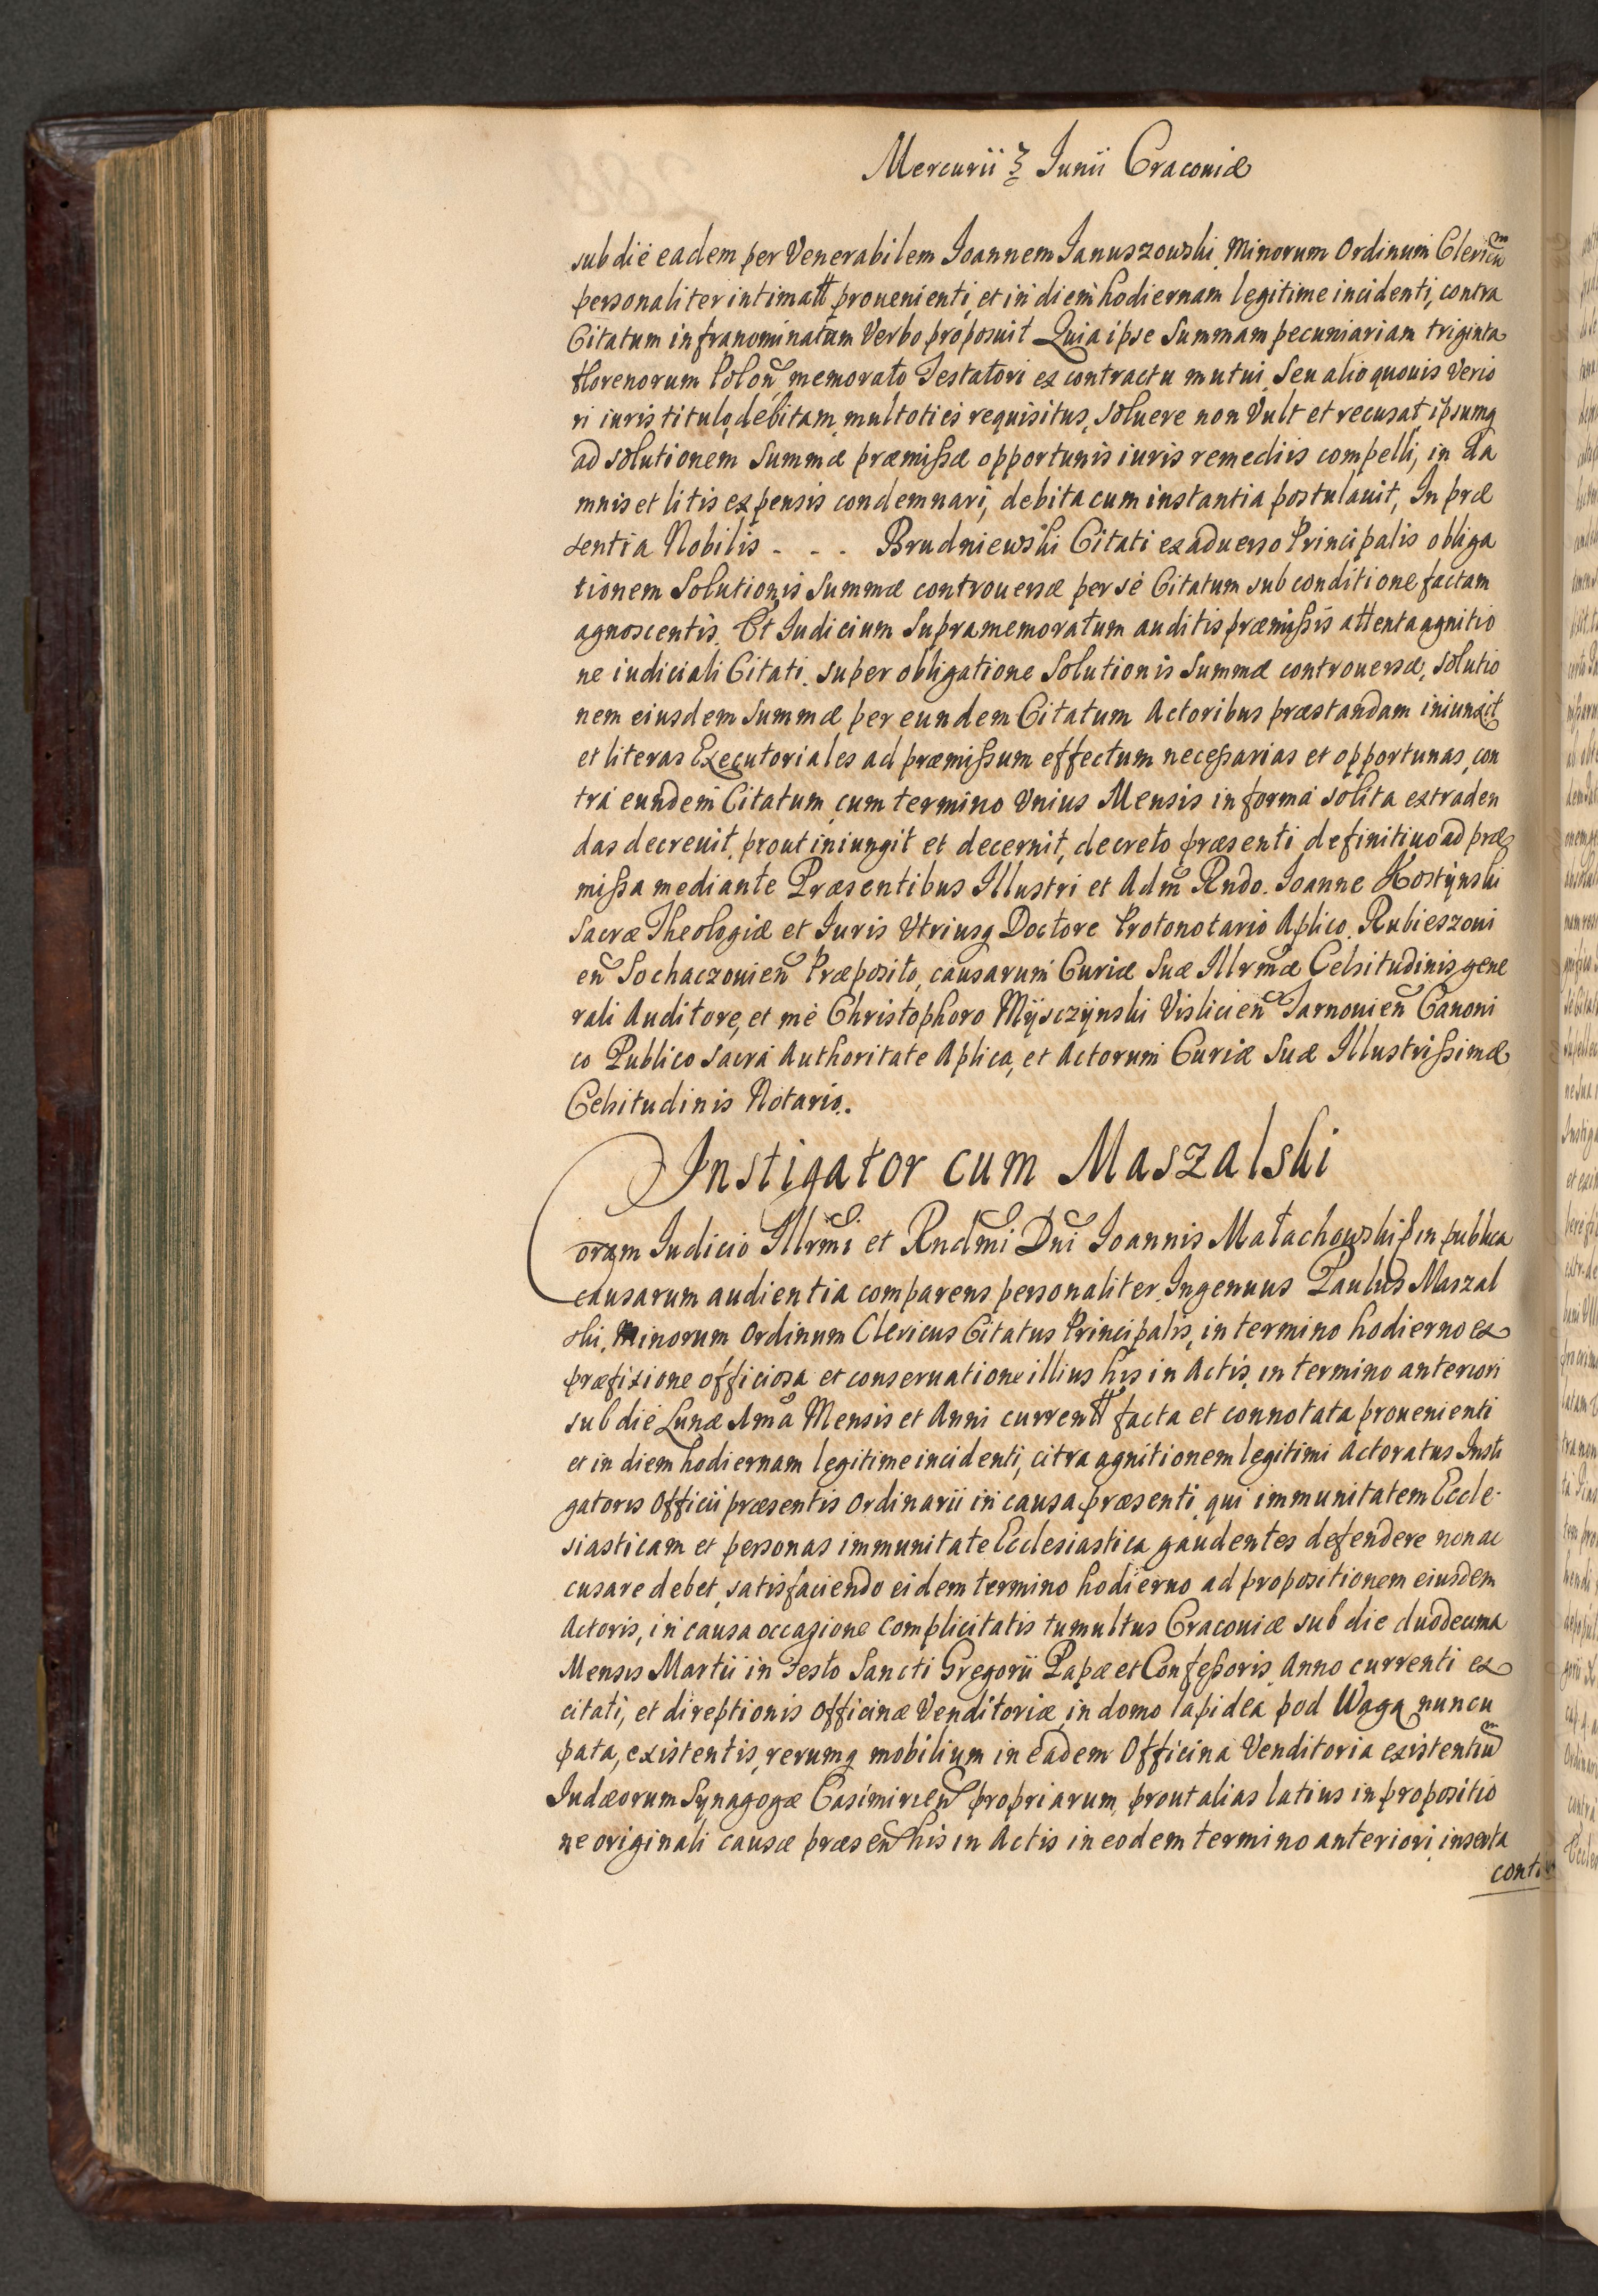 Mercurii 3 Junii Cracoviæ
sub die eadem per Venerabilem Joannem Januszowski Minorum Ordinum Clericũ
personaliter intimatt prouenienti, et in diem hodiernam legitime incidenti, contra
Citatum infranominatum Verbo proposuit Quia ipse Summam pecuniariam triginta
florenorum Polon memorato Testatori ex contractu mutui, Seu alio quouis Verio
ri iuris titulo, debitam, multoties requisitus, soluere non Vult et recusat ipsumq
ad solutionem Summæ præmissæ opportunis iuris remediis compelli, in da
mnis et litis expensis condemnari, debita cum instantia postulauit, In præ
sentia Nobilis - - - Brudniewski Citati ex aduerso Principalis obliga
tionem Solutionis Summæ controuersæ per se Citatum sub conditione factam
agnoscentis. Et Judicium Supramemoratum auditis præmissis attenta agnitio
ne iudiciali Citati super obligatione Solutionis Summæ controuersæ, Solutio
nem eiusdem Summæ per eundem Citatum Actoribus præstandam iniunxit
et literas Executoriales ad præmissum effectum necessarias et opportunas, con
tra eundem Citatum cum termino Vnius Mensis in forma solita extraden
das decreuit, prout iniungit et decernit, decreto præsenti definitiuo ad præ
missa mediante Præsentibus Illustri et Adm Rndo. Joanne Kostÿnski
Sacræ Theologiæ et Juris Vtriusq Doctore Protonotario Aplico. Rubieszoui
en Sochaczouien Præposito, causarum Curiæ Suæ Illrmæ Celsitudinis gene
rali Auditore, et me Christophoro Mÿsczÿnski Vislicien Tarnouien Canoni
co Publico Sacra Authoritate Aplica, et Actorum Curiæ Suæ Illustrissimæ
Celsitudinis Notario.
Instigator cum Maszalski
Coram Judicio Illrmi et Rndmi Dni Joannis Małachowski in publica
causarum audientia comparens personaliter Ingenuus Paulus Maszal
ski, Minorum Ordinum Clericus Citatus Principalis, in termino hodierno ex
præfixione officiosa et conseruatione illius his in Actis, in termino anteriori
sub die Lunæ 1ma Mensis et Anni currentt facta et connotata prouenienti
et in diem hodiernam legitime incidenti, citra agnitionem legitimi Actoratus Insti
gatoris Officii præsentis Ordinarii in causa præsenti, qui immunitatem Eccle-
siasticam et personas immunitate Ecclesiastica gaudentes defendere non ac
cusare debet, satisfaciendo eidem termino hodierno ad propositionem eiusdem
Actoris, in causa occasione complicitatis tumultus Cracouiæ sub die duodecima
Mensis Martii in Festo Sancti Gregorii Papæ et Confessoris Anno currenti ex
citati, et direptionis Officinæ Venditoriæ in domo lapidea pod Waga nuncu
pata, existentis, rerumq mobilium in eadem Officina Venditoria existentiũ
Judæorum Synagogæ Casimirien propriarum, prout alias latius in propositio
ne originali causæ præsen his in Actis in eodem termino anteriori inserta